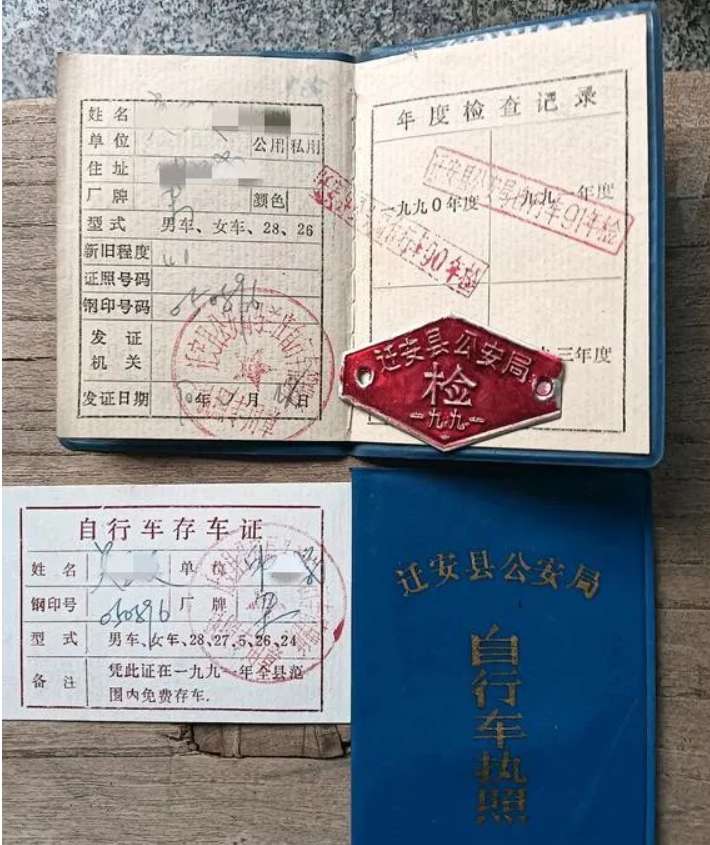 姓名
单位 公用 私用
住址
厂牌 颜色
型式 男车、女车、28、26
新旧程度
证照号码
钢印号码 050896
发证
机关
发证日期 90年 月 日
年度检查记录
一九九0年度 一九九一年度
迁安县公安局自行车91年检
自行车90年检
三年度
迁安县公安局
检
一九九一
自行车存车证
姓名 单位
钢印号 050896 厂牌
型式 男车、女车、28、27、5、26、24
备注 凭此证在一九九一年全县范
围内免费存车.
迁安县公安局
自行车执照